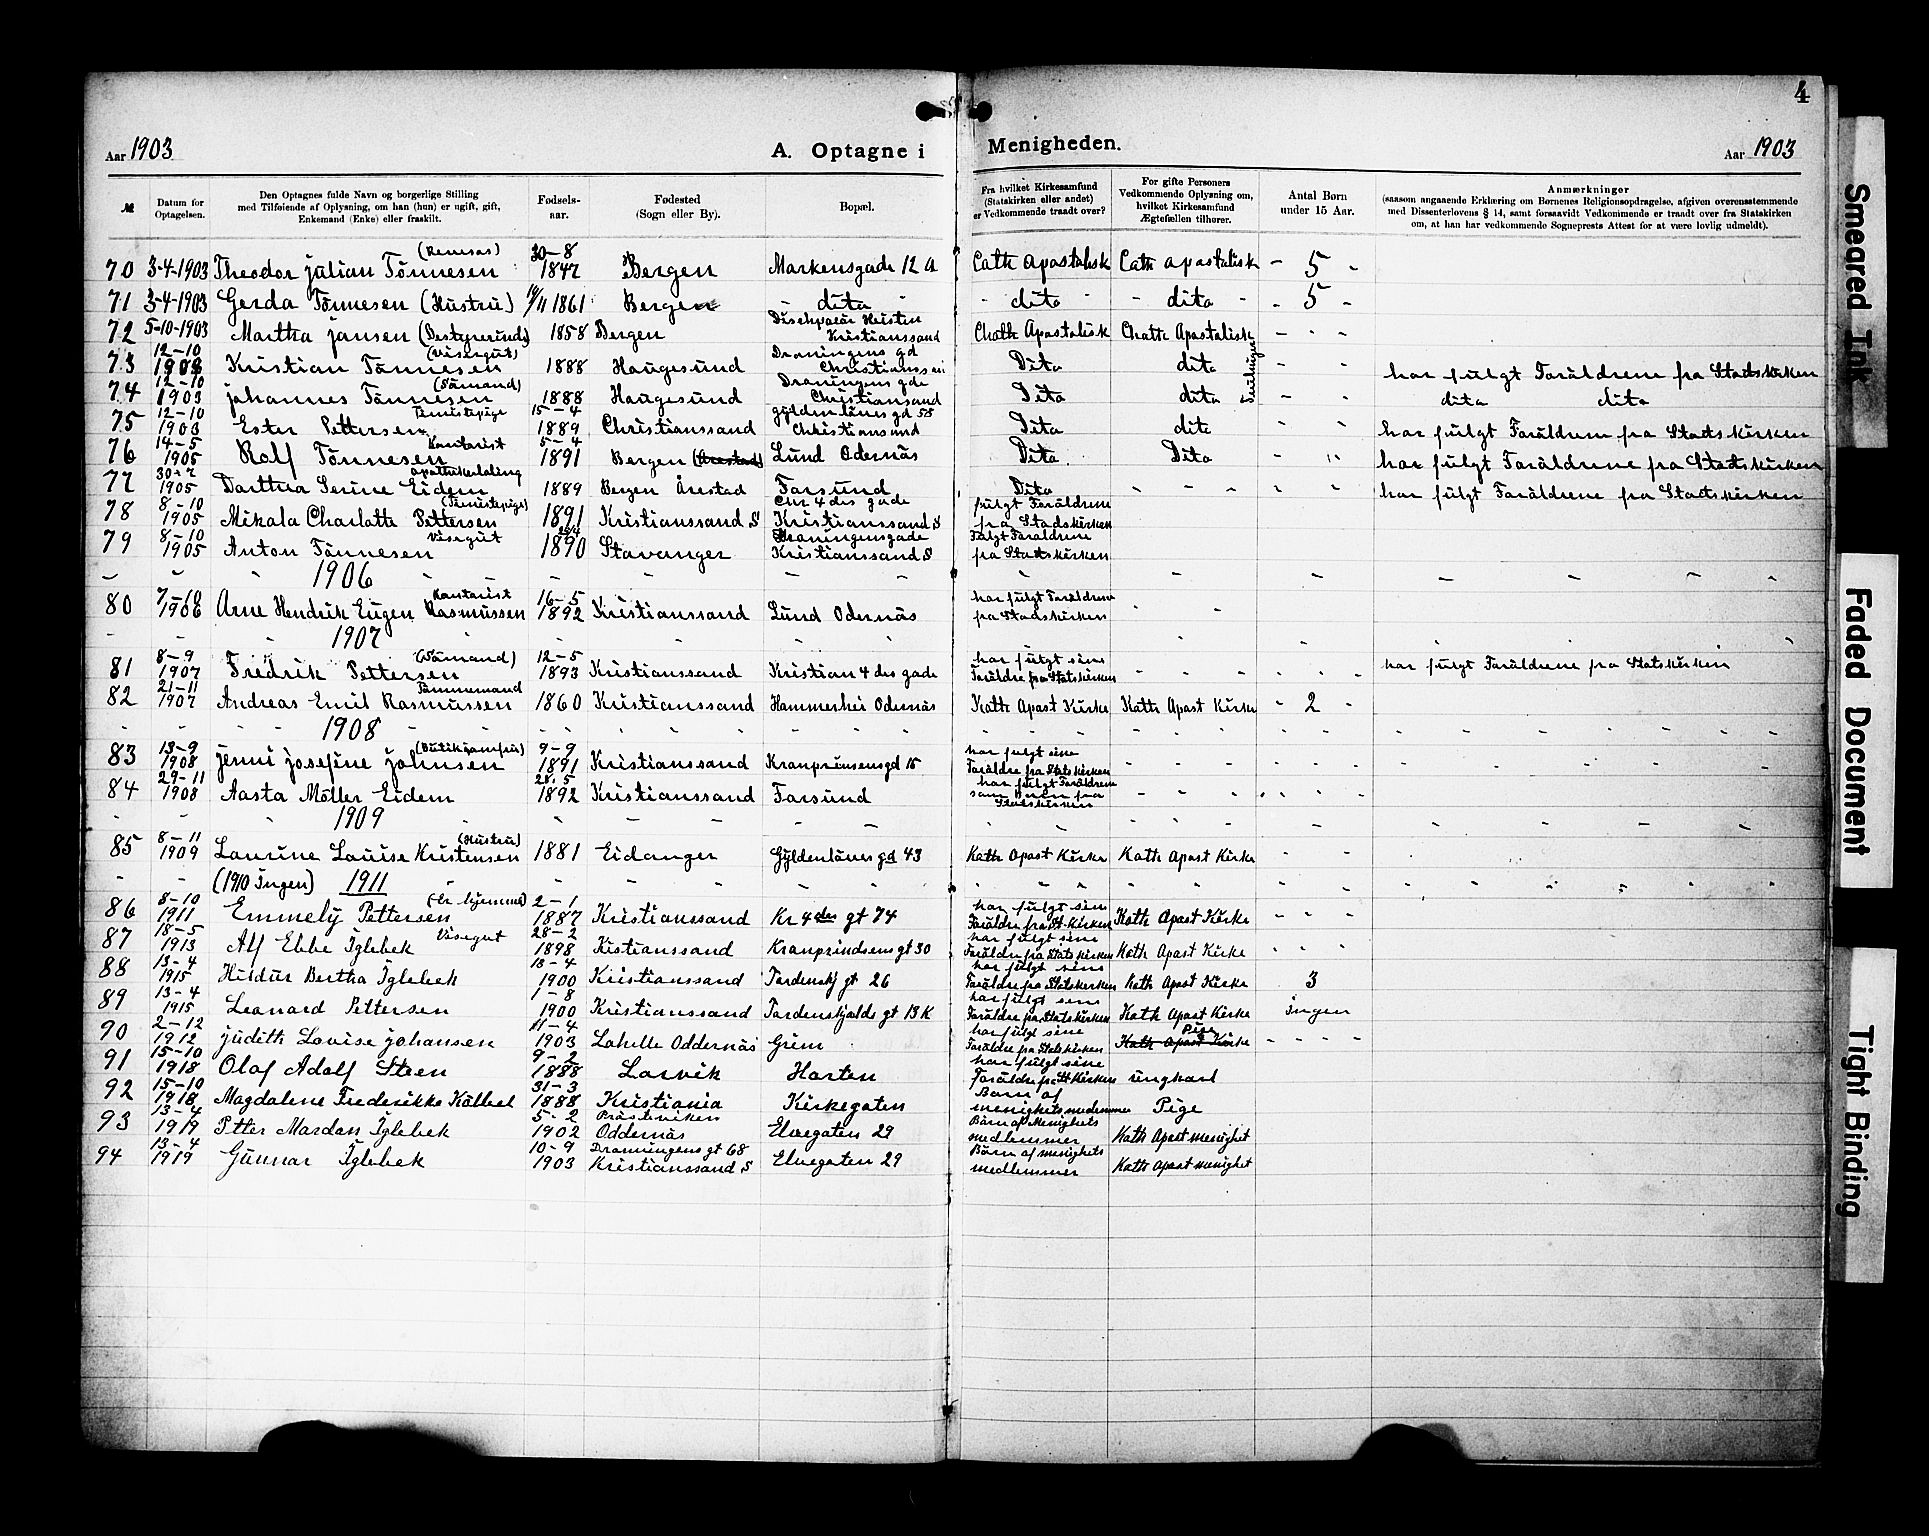 4
Aar 1903
A. Optagne i Menigheden.
Aar 1903
№
Datum for Optagelsen.
Den Optagnes fulde Navn og borgerlige Stilling
med Tilføiende af Oplysning, om han (hun) er ugift, gift,
Enkemand (Enke) eller fraskilt.
Fødsels-
aar.
Fødested
(Sogn eller By).
Bopæl.
Fra hvilket Kirkesamfund
(Statskirken eller andet)
er Vedkommende traadt over?
For gifte Personers
Vedkommende Oplysning om,
hvilket Kirkesamfund
Ægtefællen tilhører.
Antal Børn
under 15 Aar.
Anmærkninger
(saasom angaaende Erklæring om Børnenes Religionsopdragelse, afgiven overensstemmende
med Dissenterlovens § 14, samt forsaavidt Vedkommende er traadt over fra Statskirken
om, at han har vedkommende Sogneprests Attest for at være lovlig udmeldt).
70 3-4-1903 Theodor Julian Tönnesen 30-8 1847 Bergen Markensgade 12 a Cath Apostalisk Cath apostalisk - 5 -
71 3-4-1903 Gerda Tönnesen (Hustru) 1861 Bergen - dito " - dito " - dito - - 5 -
72 5-10-1903 Martha Jansen 1858 Bergen Kristianssand Chath Apostalisk Chath Apostalisk - - -
73 12-10 Kristian Tönnesen (Visergut) 1888 Haugesund Droningens gd Dito dito - - har fulgt Foräldrene fra Stadskirken
74 12-10 1903 Johannes Tönnesen (Sömand) 1888 Haugesund Droningens gde Christiansand Dito dito - - dito dito
75 12-10 1903 Ester Pettersen 15-4 1889 Christianssand gyldenlöves gd 58 Christiansand Dito dito - - har fulgt Foräldrene fra Stadskirken
76 14-5 1905 Rolf Tönnesen Kontorist 5-4 1891 Bergen Lund Odernäs Dito Dito - " har fulgt Foräldrene fra Stadskirken
77 1905 Dorthea Serine Eidem 1889 Bergen Årestad Farsund Dito - - - - - har fulgt Foräldrene fra Stadskirken
78 8-10 1905 Mikala Charlotte Pettersen (Tjenestepige) 1891 Kristianssand S Chr 4 des gade Kristianssand S fulgt Foräldrene fra Stadskirken
79 8-10 1905 Anton Tönnesen Visergut 1890 Stavanger Droningensgade Kristianssand S Fulgt Foräldrene fra Stadskirken
1906
80 7-10 1906 Arne Hendrik Eugen Rasmussen Kontorist 16-5 1892 Kristianssand Lund Odernäs har fulgt Foräldrene fra Stadskirken
1907
81 8-9 1907 Fredrik Pettersen (Sömand) 12-5 1893 Kristianssand Kristian 4 des gade har fulgt sine Foräldre fra Statskirken - - - - - har fulgt Foräldrene fra Statskirken
82 21-11 1907 Andreas Emil Rasmussen Tömmermand 1860 Kristianssand Hammerhei Odernäs Kath Apost Kirke Kath Apost Kirke - 2 -
1908
83 13-9 1908 Jenni Josefine Johnsen (Butikjomfru) 9-9 1891 Kristianssand Kronprinsensgd 15 har fulgt sine Foräldre fra Statskirken
84 29-11 1908 Aasta Möller Eidem 28-5 1892 Kristianssand Farsund har fulgt Foräldrene som Barn fra Stadskirken
1909
85 8-11 1909 Laurine Louise Kristensen (Hustru) 1881 Eidanger Gyldenlöves gd 43 Kath Apost Kirke Kath Apost Kirke - -
(1910 Ingen) 1911
86 8-10 1911 Emmely Pettersen (Er hjemme) 2-1 1887 Kristianssand Kr 4 des gt 74 har fulgt sin Foräldre fra St-Kirken Kath Apost Kirke - - -
87 18-5 1913 Alf Ebbe Iglebek Visergut 28-2 1898 Kistianssand Kronprindsens gt 30 har fulgt sine Foräldre fra Stats Kirken Kath Apost Kirke - - -
88 13-4 1915 Huldur Bertha Iglebek 13-4 1900 Kristianssand Tordenskj gt 26 har fulgt sine Foräldre fra Statskirken Kath Apost Kirke 3
89 13-4 1915 Leonard Pettersen 1-8 1900 Kristianssand Tordenskjolds gt 13 K har fulgt sine Foräldre fra Statskirken Kath Apost Kirke ingen
90 2-12 1912 Judith Lovise Johansen 11-4 1903 Lahelle Oddernäs Grim har fulgt sine Foräldre fra Statskirken Kath Apost Kirke Pige - - - -
91 15-10 1918 Olaf Adolf Steen 9-2 1888 Larvik Horten har fulgt sine Foräldre fra St Kirken ungkarl
92 15-10 1918 Magdalene Frederikke Kölbel 31-3 1888 Kristiania Kirkegaten Barn af menighetsmedemmer Pige
93 13-4 1919 Petter Mardon Iglebek 5-2 1902 Prästeviken Oddernäs Elvegaten 29 Börn af Menighets medlemmer Kath Apost menighet
94 13-4 1919 Gunnar Iglebek 10-9 1903 Dronningens gt 68 Kristianssand S Elvegaten 29 Börn af menighets medlemmer Kath Apost menighet
Smeared Ink
Faded Document
Tight Binding